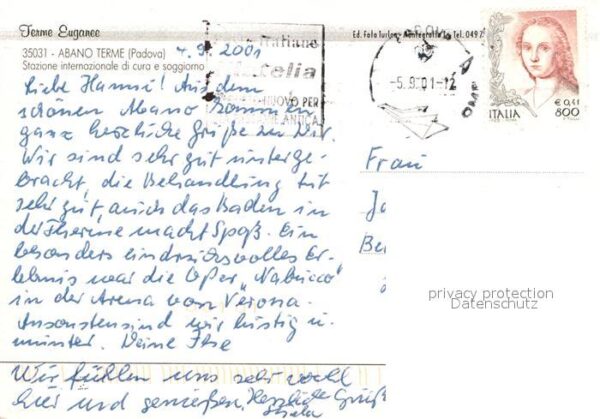 Terme Euganee
35031 - ABANO TERME (Padova)
Stazione internazionale di cura e soggiorno
4.9.2001
Liebe Hanni! Aus dem
schönen Abano kommen
ganz herzliche Grüße zu Dir.
Wir sind sehr gut unterge-
bracht, die Behandlung tut
sehr gut, auch das Baden in
der Therme macht Spaß. Ein
besonders eindrucksvolles Er-
lebnis war die Oper "Nabucco"
in der Arena von Verona.
Ansonsten sind wir lustig u.
munter. Deine Ilse
Wir fühlen uns sehr wohl
hier und genießen. Herzliche Grüße
Ed. Foto
Tel. 0497
NUOVO PER
ANTICA
-5.9.01-12
€ 0,41
ITALIA 800
Frau
Ja
Be
privacy protection
Datenschutz